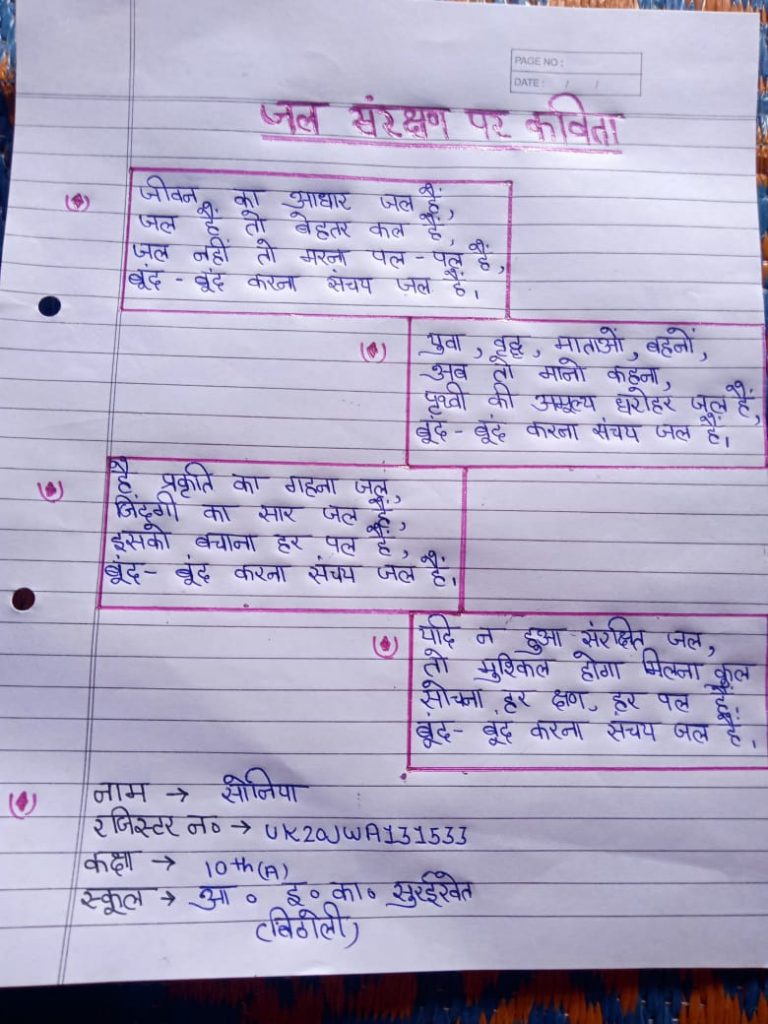 PAGE NO :
DATE : / /
जल संरक्षण पर कविता
जीवन का आधार जल हैं,
जल हैं तो बेहतर कल हैं,
जल नहीं तो मरना पल - पल हैं,
बूंद - बूंद करना संचय जल हैं।
युवा, वृद्ध, माताओं, बहनों,
अब तो मानो कहना,
पृथ्वी की अमूल्य धरोहर जल हैं,
बूंद - बूंद करना संचय जल हैं।
है प्रकृति का गहना जल,
जिंदगी का सार जल हैं,
इसको बचाना हर पल हैं,
बूंद - बूंद करना संचय जल हैं।
यदि न हुआ संरक्षित जल,
तो मुश्किल होगा मिलना कल
सोचना हर क्षण, हर पल हैं।
बूंद - बूंद करना संचय जल हैं।
नाम → सोनिया
रजिस्टर न० → UK20JWA131533
कक्षा → 10th(A)
स्कूल → आ० इ० का० सुरईखेत
(बिठोली)